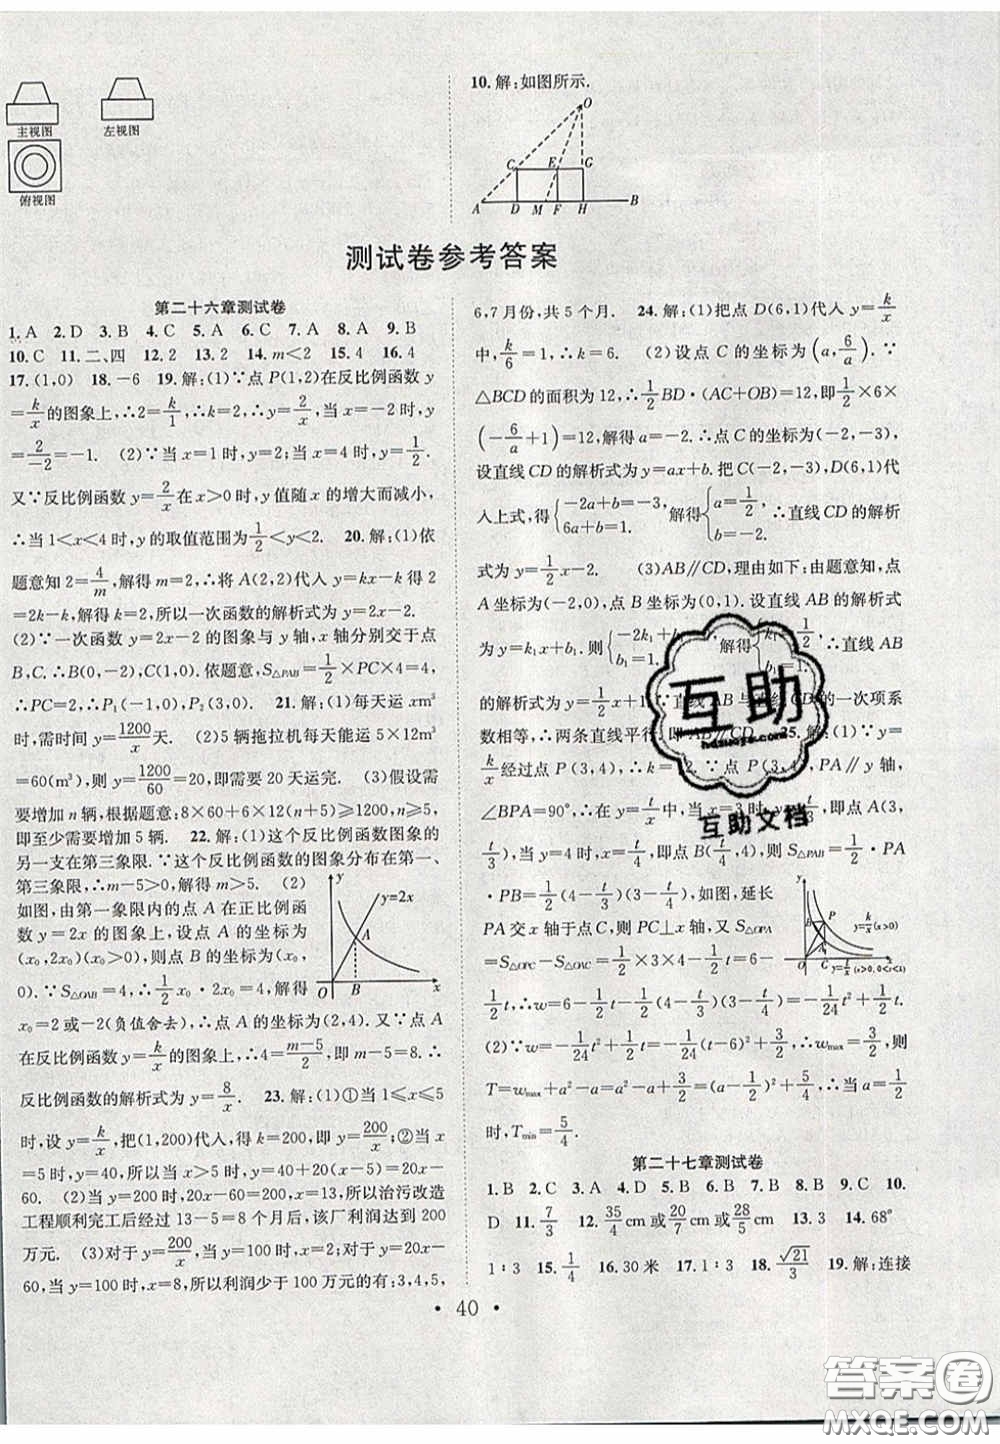 主视图
左视图
俯视图
10. 解:如图所示.
O
C E G
A D M F H B
测试卷参考答案
第二十六章测试卷
1. A 2. D 3. B 4. C 5. A 6. C 7. B 8. A 9. B
10. C 11. 二、四 12. 2 13. 2 14. m<2 15. 4 16. 4
17. (1,0) 18. -6 19. 解:(1)∵点 P(1,2)在反比例函数 y
=k/x的图象上,∴2=k/1,∴k=2,∴y=2/x,当 x=-2 时,y
=2/-2=-1. (2)∵当 x=1 时,y=2;当 x=4 时,y=1/2.
又∵反比例函数 y=2/x在 x>0 时,y 值随 x 的增大而减小,
∴当 1<x<4 时,y 的取值范围为1/2<y<2. 20. 解:(1)依
题意知 2=4/m,解得 m=2,∴将 A(2,2)代入 y=kx-k 得 2
=2k-k,解得 k=2,所以一次函数的解析式为 y=2x-2.
(2)∵一次函数 y=2x-2 的图象与 y 轴,x 轴分别交于点
B,C.∴B(0,-2),C(1,0).依题意,S△PAB=1/2×PC×4=4,
∴PC=2,∴P₁(-1,0),P₂(3,0). 21. 解:(1)每天运 x m³
时,需时间 y=1200/x天. (2)5 辆拖拉机每天能运 5×12m³
=60(m³),则 y=1200/60=20,即需要 20 天运完. (3)假设需
要增加 n 辆,根据题意:8×60+6×12(n+5)≥1200,n≥5,
即至少需要增加 5 辆. 22. 解:(1)这个反比例函数图象的
另一支在第三象限.∵这个反比例函数的图象分布在第一、
第三象限,∴m-5>0,解得 m>5. (2)
如图,由第一象限内的点 A 在正比例函
数 y=2x 的图象上,设点 A 的坐标为
(x₀,2x₀)(x₀>0),则点 B 的坐标为(x₀,
0).∵S△OAB=4,∴1/2x₀·2x₀=4,解得
y
y=2x
A
O B x
x₀=2 或-2(负值舍去),∴点 A 的坐标为(2,4).又∵点 A
在反比例函数 y=k/x的图象上,∴4=m-5/2,即 m-5=8.∴
反比例函数的解析式为 y=8/x. 23. 解:(1)①当 1≤x≤5
时,设 y=k/x,把(1,200)代入,得 k=200,即 y=200/x;②当 x
=5 时,y=40,所以当 x>5 时,y=40+20(x-5)=20x-
60. (2)当 y=200 时,20x-60=200,x=13,所以治污改造
工程顺利完工后经过 13-5=8 个月后,该厂利润达到 200
万元. (3)对于 y=200/x,当 y=100 时,x=2;对于 y=20x-
60,当 y=100 时,x=8,所以利润少于 100 万元的有:3,4,5,
6,7 月份,共 5 个月. 24. 解:(1)把点 D(6,1)代入 y=k/x
中,k/6=1,∴k=6. (2)设点 C 的坐标为(a,6/a).∵
△BCD 的面积为 12,∴1/2BD·(AC+OB)=12,即1/2×6×
(-6/a+1)=12,解得 a=-2.∴点 C 的坐标为(-2,-3),
设直线 CD 的解析式为 y=ax+b.把 C(-2,-3),D(6,1)代
入上式,得{-2a+b=-3, 6a+b=1. 解得{a=1/2, b=-2. ∴直线 CD 的解析
式为 y=1/2x-2. (3)AB∥CD,理由如下:由题意知,点
A 坐标为(-2,0),点 B 坐标为(0,1).设直线 AB 的解析式
为 y=k₁x+b₁.则{-2k₁+b₁ b₁=1. 解得{k₁=1/2, b₁=1. ∴直线 AB
的解析式为 y=1/2x+1.∵直线 AB 与直线 CD 的一次项系
数相等,∴两条直线平行,即 AB∥CD. 25. 解:(1)∵y=
k/x经过点 P(3,4),∴k=12.∵点 P(3,4),PA∥y 轴,
∠BPA=90°.∴在 y=t/x中,当 x=3 时,y=t/3,即点 A(3,
t/3),当 y=4 时,x=t/4,即点 B(t/4,4),则 S△PAB=1/2·PA
·PB=1/2(4-t/3)(3-t/4),如图,延长
PA 交 x 轴于点 C,则 PC⊥x 轴,又 S△OPA
=S△OPC-S△OAC=1/2×3×4-1/2t=6-
y
B P
A
O C x
y=k/x(x>0)
y=t/x(x>0,0<t<k)
1/2t,∴w=6-1/2t-1/2(4-t/3)(3-t/4)=-1/24t²+1/2t.
(2)∵w=-1/24t²+1/2t=-1/24(t-6)²+3/2,∴wmax=3/2,则
T=wmax+a²-a=a²-a+3/2=(a-1/2)²+5/4,∴当 a=1/2
时,Tmin=5/4.
第二十七章测试卷
1. B 2. C 3. A 4. D 5. B 6. D 7. B 8. B 9. C 10.
D 11. 7/3 12. 35/4cm 或20/7cm 或28/5cm 13. 3 14. 68°
1∶3 15. 1/4 16. 30 米 17. 1∶3 18. √21/3 19. 解:连接
· 40 ·
互助
互助文档
答案圈
MXQE.COM